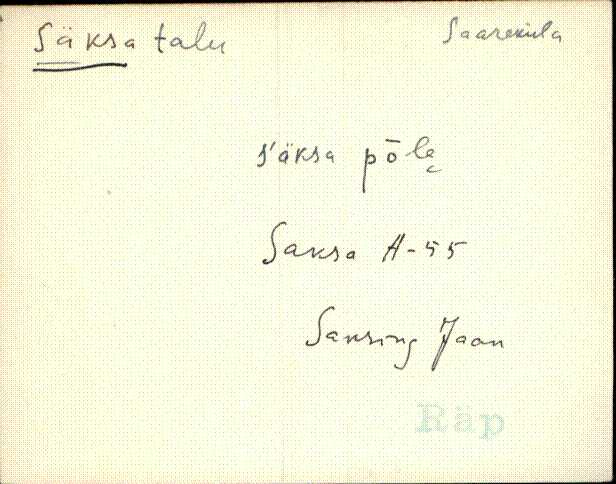 Säksa talu Saareküla
s'äksa pōle̮
Saksa A-55
Saksing Jaan
Räp